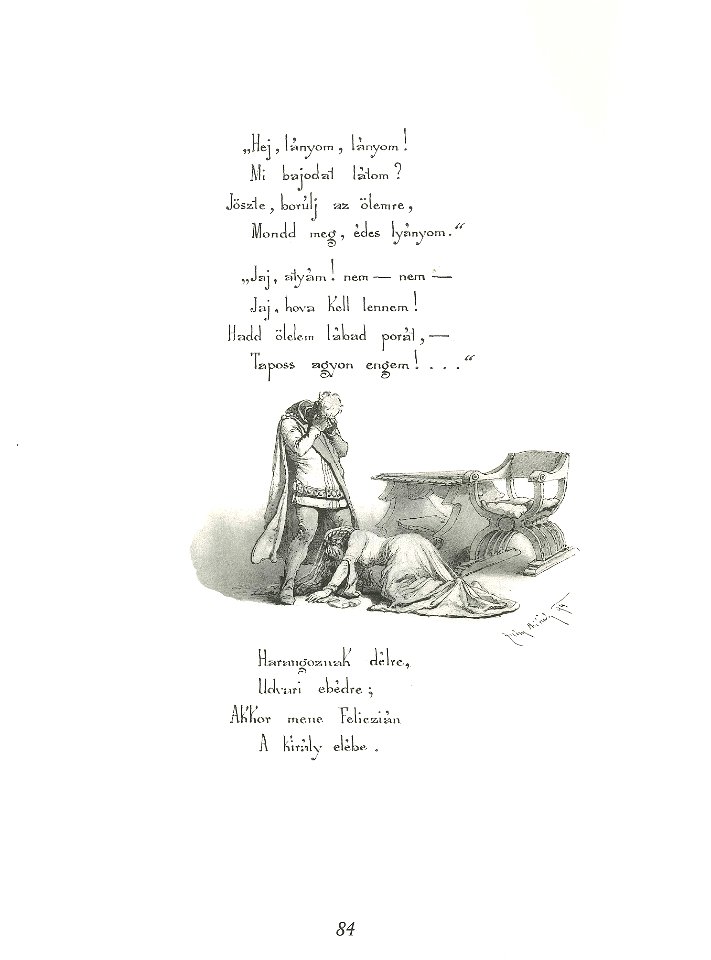 „Hej, lányom, lányom!
Mi bajodat látom?
Jöszte, borúlj az ölemre,
Mondd meg, édes lyányom.“
„Jaj, atyám! nem — nem —
Jaj, hova kell lennem!
Hadd ölelem lábad porát, —
Taposs agyon engem! . . .“
Harangoznak délre,
Udvari ebédre;
Akkor mene Feliczián
A király elébe.
84